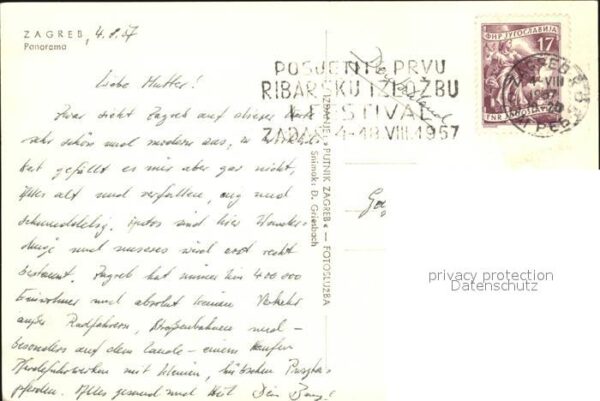 ZAGREB, 4.8.57
Panorama
Liebe Mutter!
Zwar sieht Zagreb auf dieser Karte
sehr schön und modern aus, in
keit gefällt es mir aber gar nicht,
Alles alt und verfallen, eng und
schmuddelig. Autos sind hier Wunder-
dinge und unseres wird erst recht
bestaunt. Zagreb hat immerhin 400.000
Einwohner und absolut keinen Verkehr
außer Radfahrern, Straßenbahnen und -
besonders auf dem Lande - einem Haufen
Pferdefuhrwerken mit kleinen, hübschen
pferden. Alles gesund und Dein
IZDANJE: »PUTNIK ZAGREB« — FOTOSLUŽBA
Snimak: D. Griesbach
POSJETITE PRVU
RIBARSKU IZLOŽBU
I FESTIVAL
ZADAR 4-18 VIII.1957
ФНР ЈУГОСЛАВИЈА
17
FNR JUGOSLAVIJA
ZAGREB
4-VIII
1957
privacy protection
Datenschutz